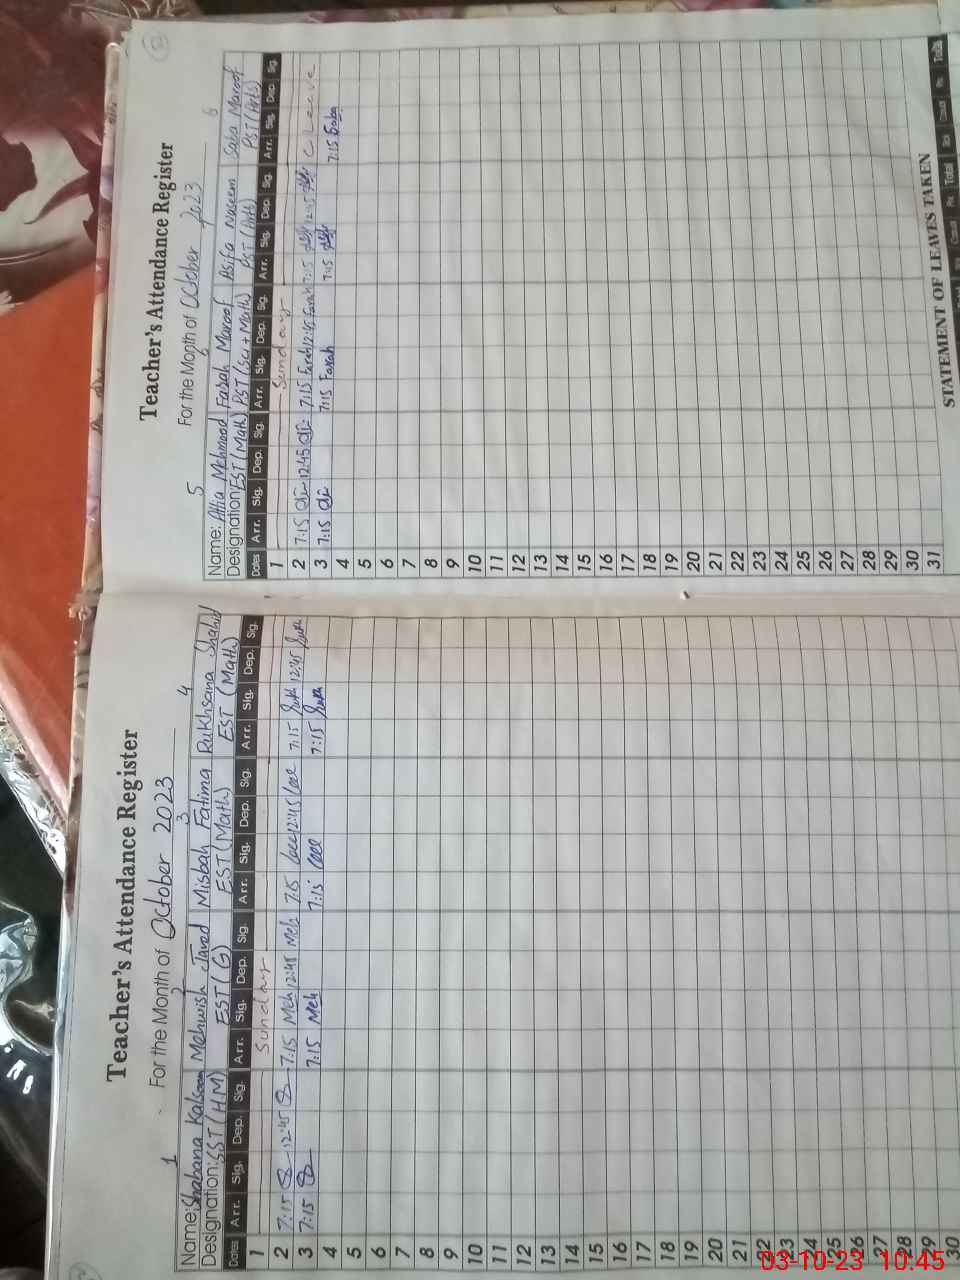 Teacher's Attendance Register
For the Month of October 2023
1 2 3 4
Name: Shabana Kalsoom Mehwish Javed Misbah Fatima Rukhsana Shahid
Designation: SST (HM) EST (G) EST (Math) EST (Math)
Dates Arr. Sig. Dep. Sig. Arr. Sig. Dep. Sig. Arr. Sig. Dep. Sig. Arr. Sig. Dep. Sig.
1 Sunday
2 7:15 12:45 7:15 Meh 12:45 Meh 7:15 12:45 7:15 12:45
3 7:15 7:15 Meh 7:15 7:15
4
5
6
7
8
9
10
11
12
13
14
15
16
17
18
19
20
21
22
23
24
25
26
27
28
29
30
Teacher's Attendance Register
For the Month of October 2023
5 6
Name: Attia Mehmood Farah Maroof Asifa Naseem Saba Maroof
Designation: EST (Math) PST (Sci + Math) PST (Arts) PST (Arts)
Dates Arr. Sig. Dep. Sig. Arr. Sig. Dep. Sig. Arr. Sig. Dep. Sig. Arr. Sig. Dep Sig.
1 Sunday
2 7:15 12:45 7:15 Farah 12:45 Farah 7:15 12:45 C Leave
3 7:15 7:15 Farah 7:15 7:15 Saba
4
5
6
7
8
9
10
11
12
13
14
15
16
17
18
19
20
21
22
23
24
25
26
27
28
29
30
31
STATEMENT OF LEAVES TAKEN
03-10-23 10:45